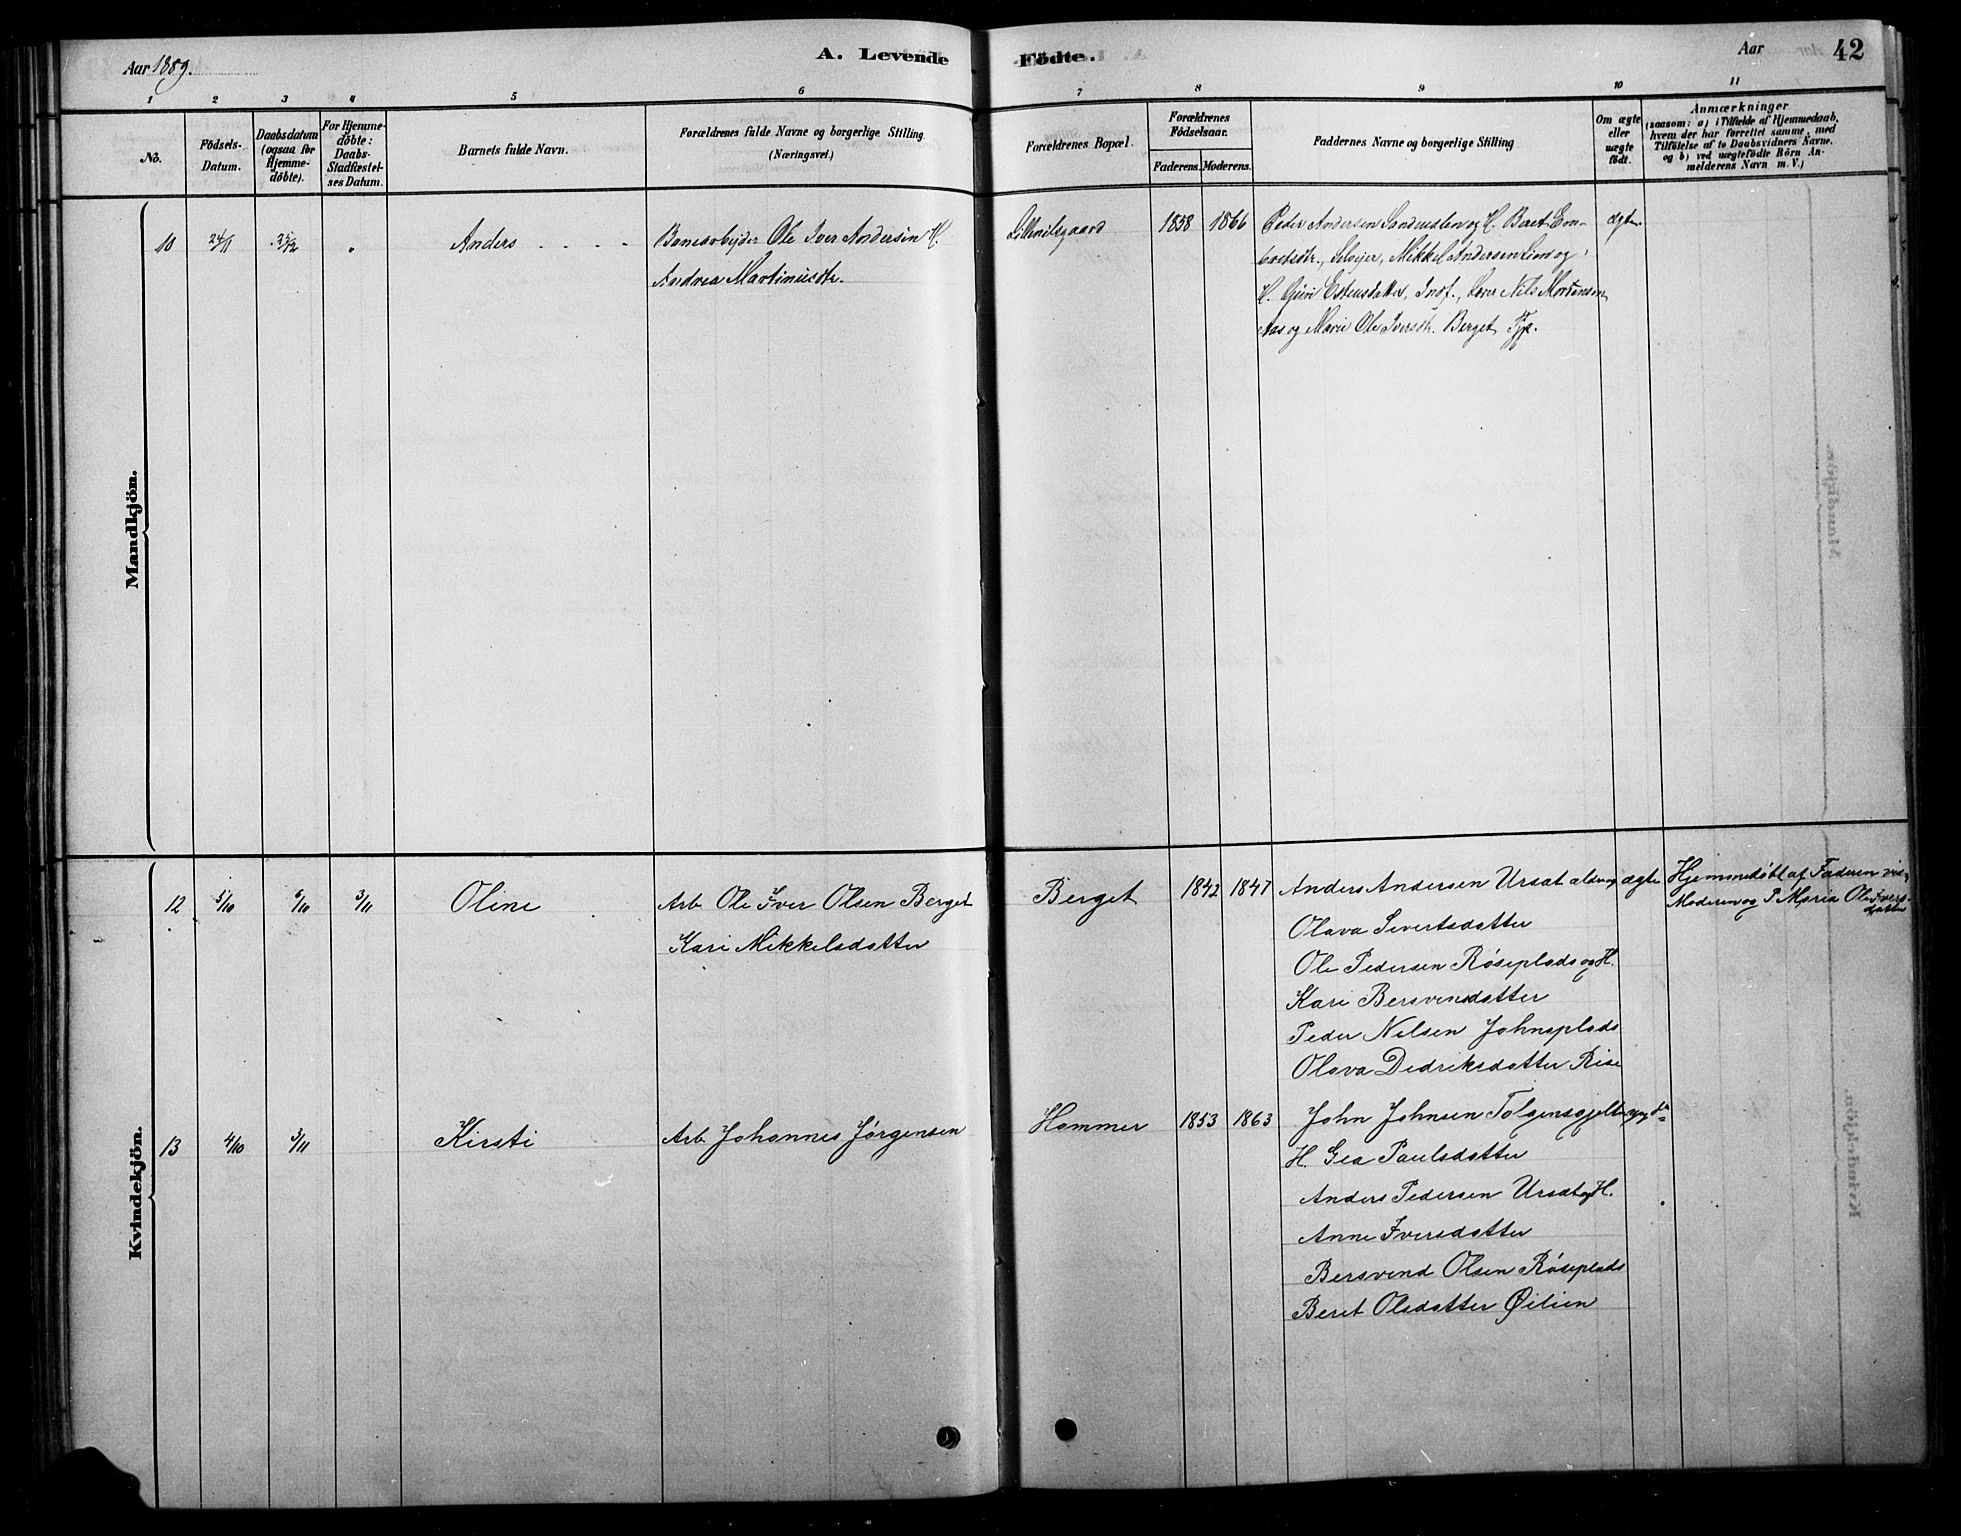 Aar 1889.
A. Levende
Födte.
Aar
42
1 2 3 4 5 6 7 8 9 10 11
No.
Födsels-
Datum.
Daabsdatum
(ogsaa for
Hjemme-
döbte).
For Hjemme-
döbte:
Daabs-
Stadfæstel-
ses Datum.
Barnets fulde Navn.
Forældrenes fulde Navne og borgerlige Stilling.
(Næringsvei.)
Forældrenes Bopæl.
Forældrenes
Födselsaar.
Faderens. Moderens.
Faddernes Navne og borgerlige Stilling
Om ægte
eller
uægte
födt.
Anmærkninger
(saasom: a) i Tilfælde af Hjemmedaab,
hvem der har forrettet samme, med
Tilföielse af to Daabsvidners Navne,
og b) ved uægtefödte Börn An-
melderens Navn m. V.)
Mandkjön.
10 24/11 25/12 " Anders
Banearbejder Ole Iver Andersen H.
Andrea Martinusdtr.
Lillenilsgaard 1858 1866
Peder Andersen og H. Baret Em-
bretsdtr., Selvejer, Mikkel Andersen og
H. Guri Estensdatter, Inds., Nils Mortensen
Aas og Marie Ole Iversdtr. Berget
ægte
Kvindekjön.
12 5/10 6/10 3/11 Oline
Arb. Ole Iver Olsen Berget
Kari Mikkelsdatter
Berget 1842 1847
Anders Andersen Ursat
Olava Sivertsdatter
Ole Pedersen Röseplads og H.
Kari Bersvendsdatter
Peder Nilsen Johnsplads
Olava Dedriksdatter Rise
ægte
Hjemmedöbt af Faderen vid.
Moderen og P. Maria Ole Ivers-
datter
13 4/10 3/11 Kirsti
Arb. Johannes Jörgensen
Hammer 1853 1863
John Johnsen
H. Gea Paulsdatter
Anders Pedersen Ursat og H.
Anne Iversdatter
Bersvend Olsen Röseplads
Beret Olsdatter Øilien